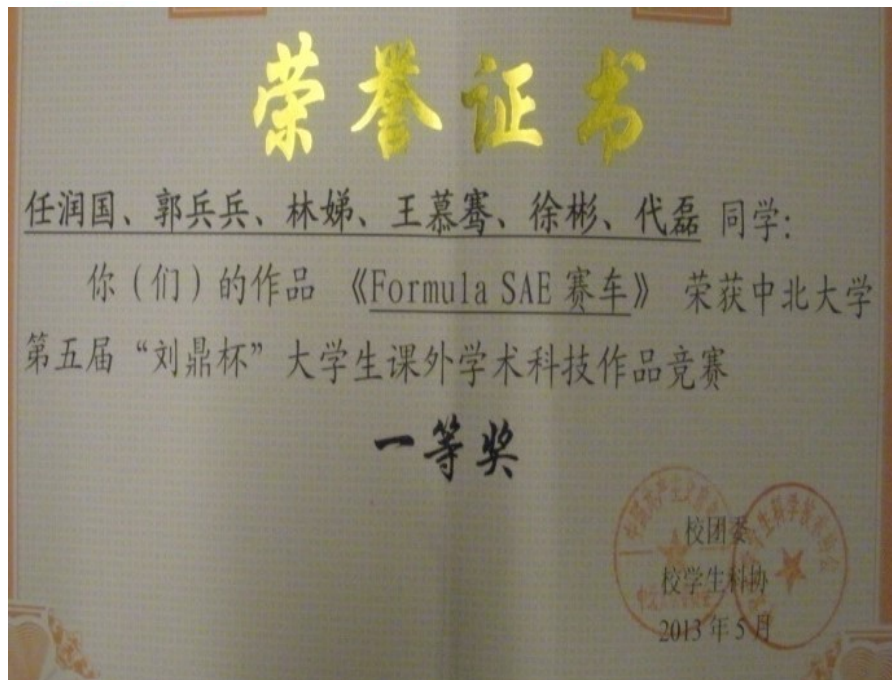 荣誉证书
任润国、郭兵兵、林娣、王慕骞、徐彬、代磊 同学：
你（们）的作品 《Formula SAE 赛车》 荣获中北大学
第五届“刘鼎杯”大学生课外学术科技作品竞赛
一等奖
校团委
校学生科协
2013 年 5 月